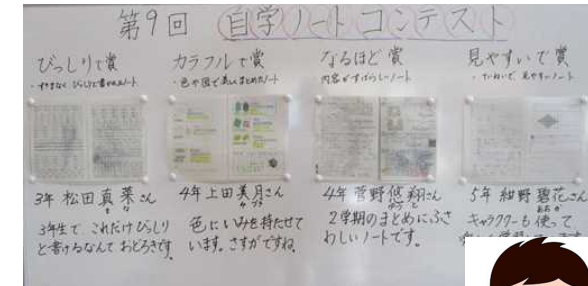 第9回 自学ノートコンテスト
びっしりで賞
・すきまなく びっしりと書かれたノート
3年 松田 真菜さん
ま な
3年生で、これだけびっしり
と書けるなんて おどろきです。
カラフルで賞
・色や図で美しくまとめたノート
4年 上田 美月さん
みづき
色にいみを持たせて
います。さすがですね。
なるほど賞
内容がすばらしいノート
4年 菅野 悠翔さん
ゆうと
2学期のまとめにふさ
わしいノートです。
見やすいで賞
・ていねいで、見やすいノート
5年 紺野 碧花さん
あおか
キャラクターも使って